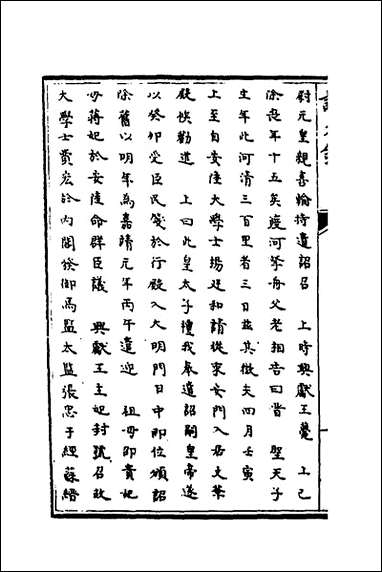 尉元皇親喜輪持遺詔召　上時興獻王薨　上已
除喪年十五矣渡河挐舟父老相告曰昔　聖天子
生年此河清三百里者三日茲其徵夫四月壬寅
上至自安陸大學士楊廷和請從東安門入居文華
殿俟勸進　上曰此皇太子禮我奉遺詔嗣皇帝遂
以癸卯受臣民箋於行殿入大明門日中即位頒詔
除舊以明年為嘉靖元年丙午遣迎　祖母邵貴妃
母蔣妃於安陸命群臣議　興獻王主妃封號召故
大學士賈宏於內閣俟御馬監太監張忠于經蘇縉